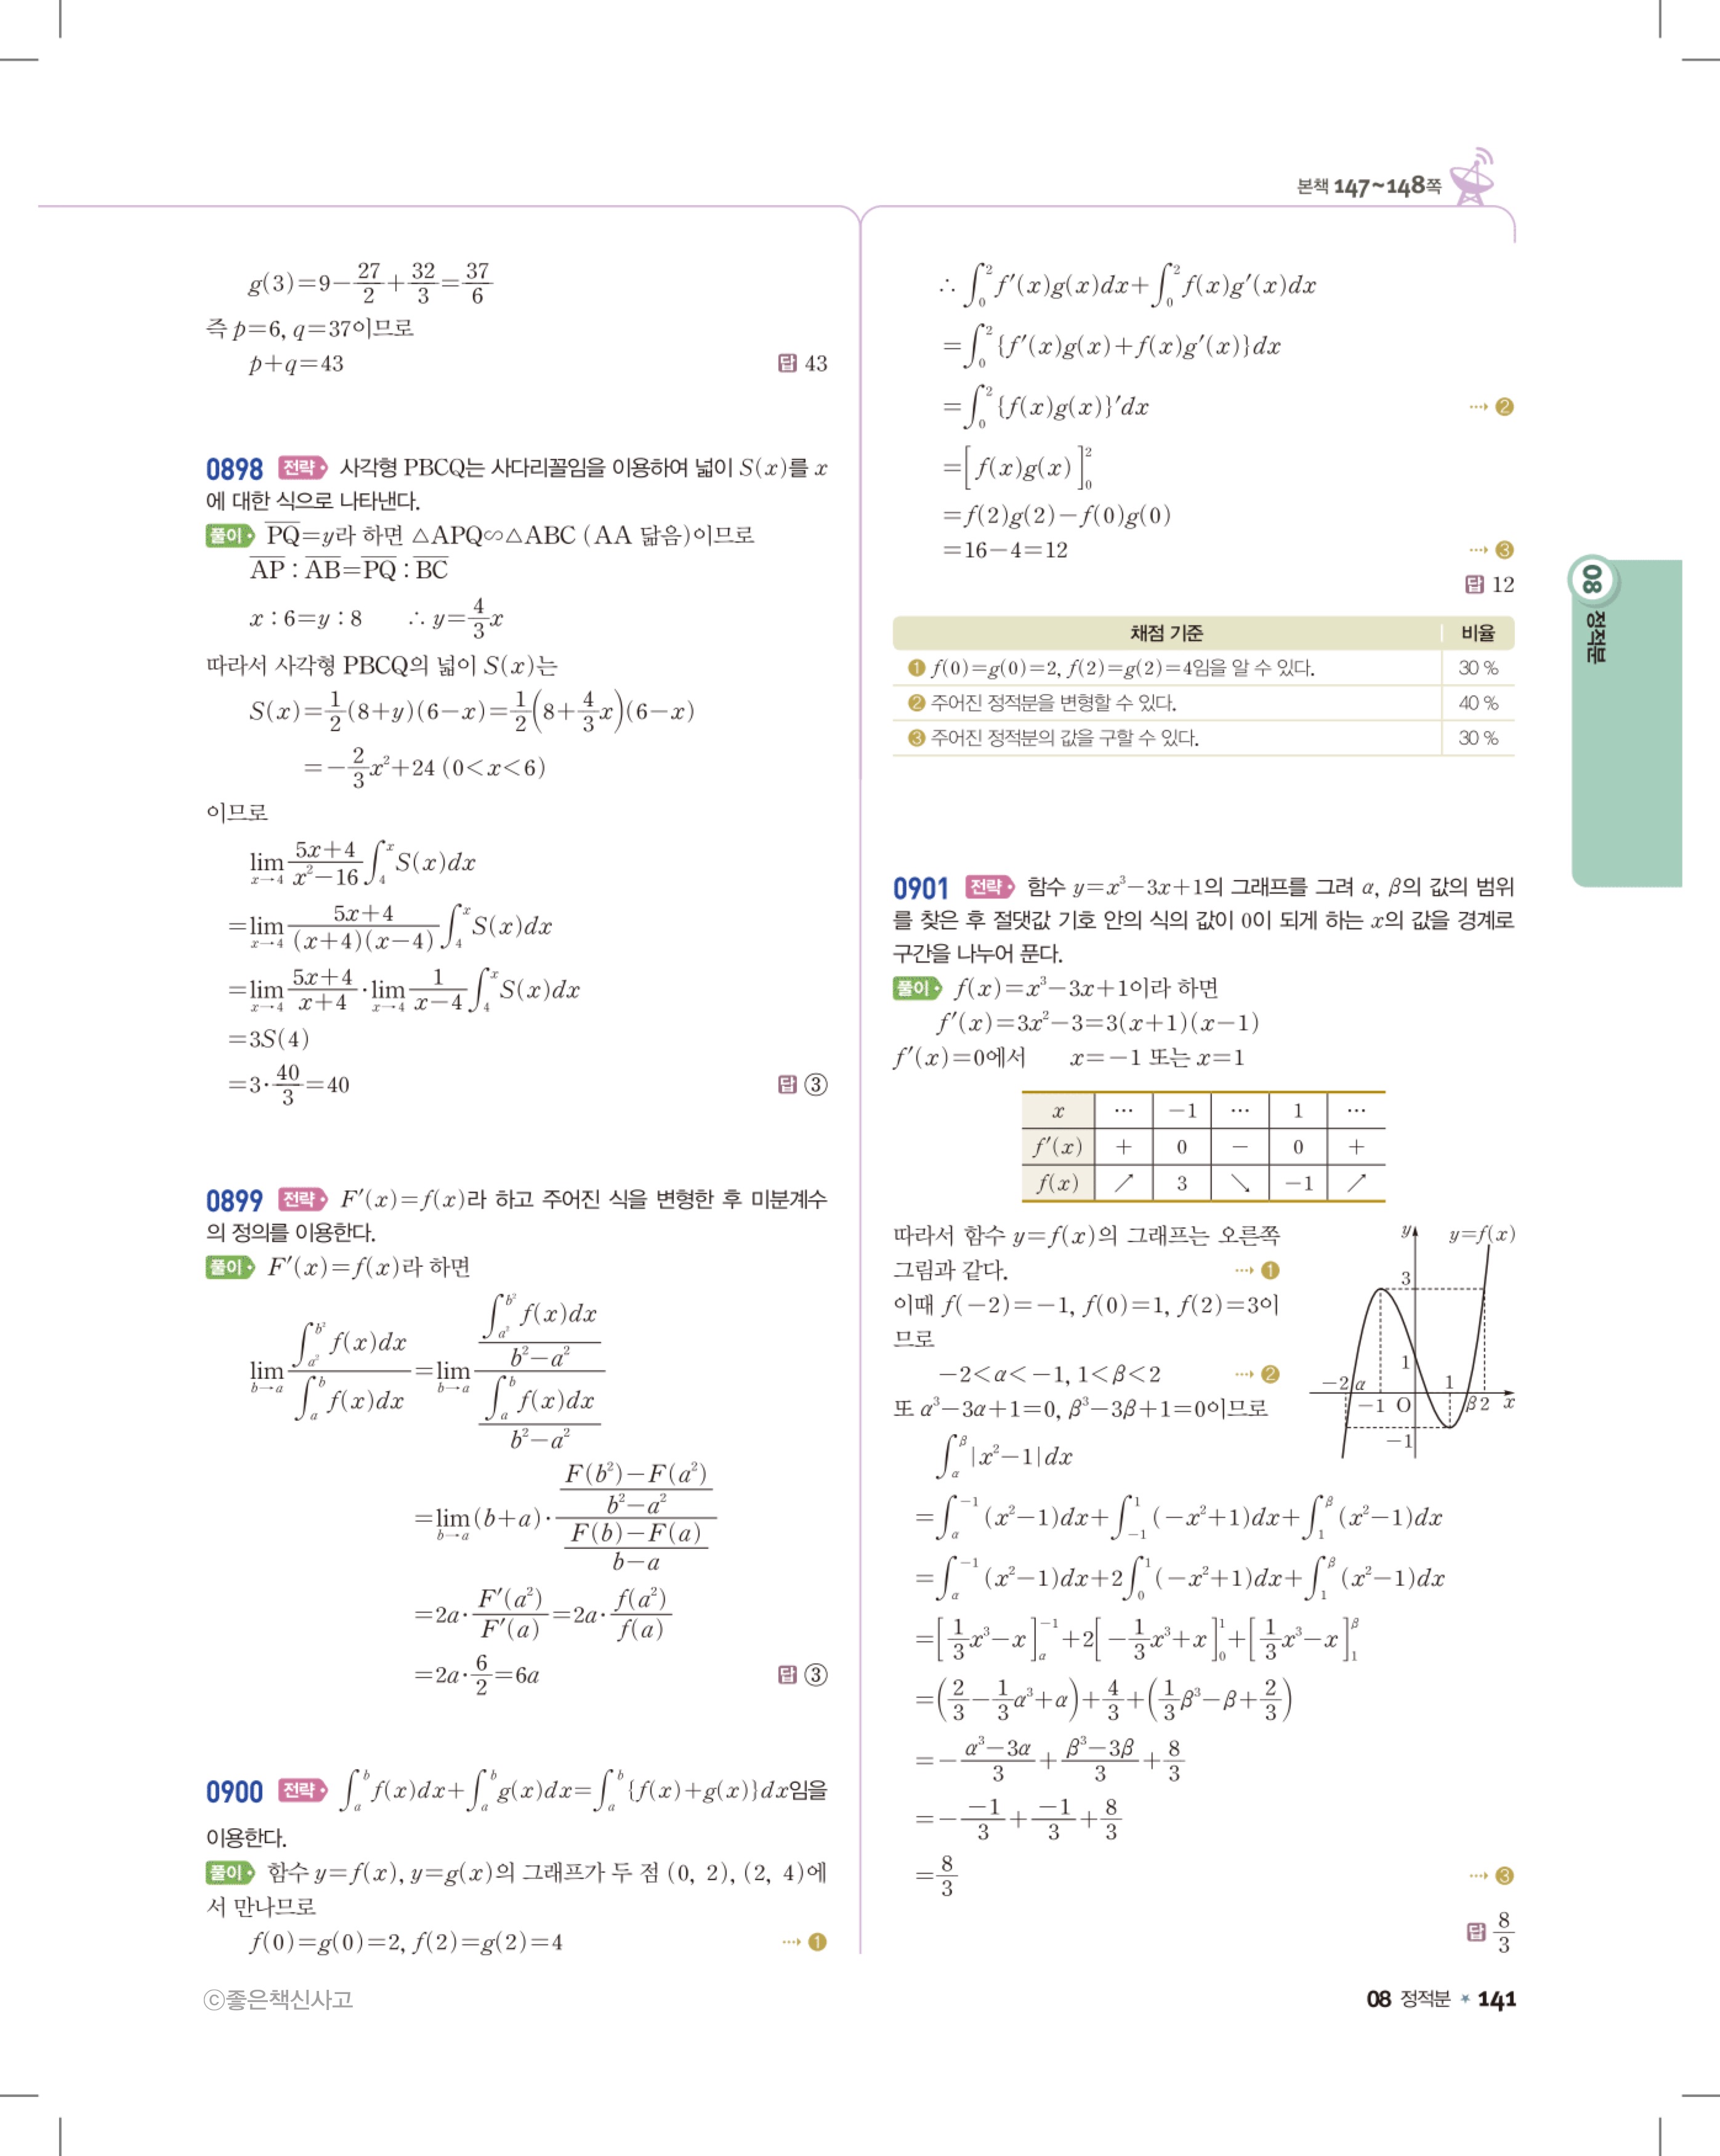 본책 147~148쪽
g(3)=9-27/2+32/3=37/6
즉 p=6, q=37이므로
p+q=43 답 43
0898 전략 사각형 PBCQ는 사다리꼴임을 이용하여 넓이 S(x)를 x
에 대한 식으로 나타낸다.
풀이 P̅Q̅=y라 하면 △APQ∽△ABC (AA 닮음)이므로
A̅P̅ : A̅B̅=P̅Q̅ : B̅C̅
x : 6=y : 8 ∴ y=4/3x
따라서 사각형 PBCQ의 넓이 S(x)는
S(x)=1/2(8+y)(6-x)=1/2(8+4/3x)(6-x)
=-2/3x²+24 (0<x<6)
이므로
lim_{x→4} (5x+4)/(x²-16) ∫_4^x S(x)dx
=lim_{x→4} (5x+4)/((x+4)(x-4)) ∫_4^x S(x)dx
=lim_{x→4} (5x+4)/(x+4) · lim_{x→4} 1/(x-4) ∫_4^x S(x)dx
=3S(4)
=3·40/3=40 답 ③
0899 전략 F′(x)=f(x)라 하고 주어진 식을 변형한 후 미분계수
의 정의를 이용한다.
풀이 F′(x)=f(x)라 하면
lim_{b→a} (∫_{a²}^{b²} f(x)dx)/(∫_a^b f(x)dx)=lim_{b→a} ((∫_{a²}^{b²} f(x)dx)/(b²-a²))/((∫_a^b f(x)dx)/(b²-a²))
=lim_{b→a} (b+a)·((F(b²)-F(a²))/(b²-a²))/((F(b)-F(a))/(b-a))
=2a·F′(a²)/F′(a)=2a·f(a²)/f(a)
=2a·6/2=6a 답 ③
0900 전략 ∫_a^b f(x)dx+∫_a^b g(x)dx=∫_a^b {f(x)+g(x)}dx임을
이용한다.
풀이 함수 y=f(x), y=g(x)의 그래프가 두 점 (0, 2), (2, 4)에
서 만나므로
f(0)=g(0)=2, f(2)=g(2)=4 ⋯→ ❶
∴ ∫_0^2 f′(x)g(x)dx+∫_0^2 f(x)g′(x)dx
=∫_0^2 {f′(x)g(x)+f(x)g′(x)}dx
=∫_0^2 {f(x)g(x)}′dx ⋯→ ❷
=[f(x)g(x)]_0^2
=f(2)g(2)-f(0)g(0)
=16-4=12 ⋯→ ❸
답 12
채점 기준 비율
❶ f(0)=g(0)=2, f(2)=g(2)=4임을 알 수 있다. 30 %
❷ 주어진 정적분을 변형할 수 있다. 40 %
❸ 주어진 정적분의 값을 구할 수 있다. 30 %
0901 전략 함수 y=x³-3x+1의 그래프를 그려 α, β의 값의 범위
를 찾은 후 절댓값 기호 안의 식의 값이 0이 되게 하는 x의 값을 경계로
구간을 나누어 푼다.
풀이 f(x)=x³-3x+1이라 하면
f′(x)=3x²-3=3(x+1)(x-1)
f′(x)=0에서 x=-1 또는 x=1
x ⋯ -1 ⋯ 1 ⋯
f′(x) + 0 - 0 +
f(x) ↗ 3 ↘ -1 ↗
따라서 함수 y=f(x)의 그래프는 오른쪽
그림과 같다. ⋯→ ❶
이때 f(-2)=-1, f(0)=1, f(2)=3이
므로
-2<α<-1, 1<β<2 ⋯→ ❷
또 α³-3α+1=0, β³-3β+1=0이므로
y y=f(x)
3
1
-2 α 1
-1 O β 2 x
-1
∫_α^β |x²-1|dx
=∫_α^{-1} (x²-1)dx+∫_{-1}^1 (-x²+1)dx+∫_1^β (x²-1)dx
=∫_α^{-1} (x²-1)dx+2∫_0^1 (-x²+1)dx+∫_1^β (x²-1)dx
=[1/3x³-x]_α^{-1}+2[-1/3x³+x]_0^1+[1/3x³-x]_1^β
=(2/3-1/3α³+α)+4/3+(1/3β³-β+2/3)
=-(α³-3α)/3+(β³-3β)/3+8/3
=-(-1)/3+(-1)/3+8/3
=8/3 ⋯→ ❸
답 8/3
08 정적분
ⓒ좋은책신사고
08 정적분 ★ 141